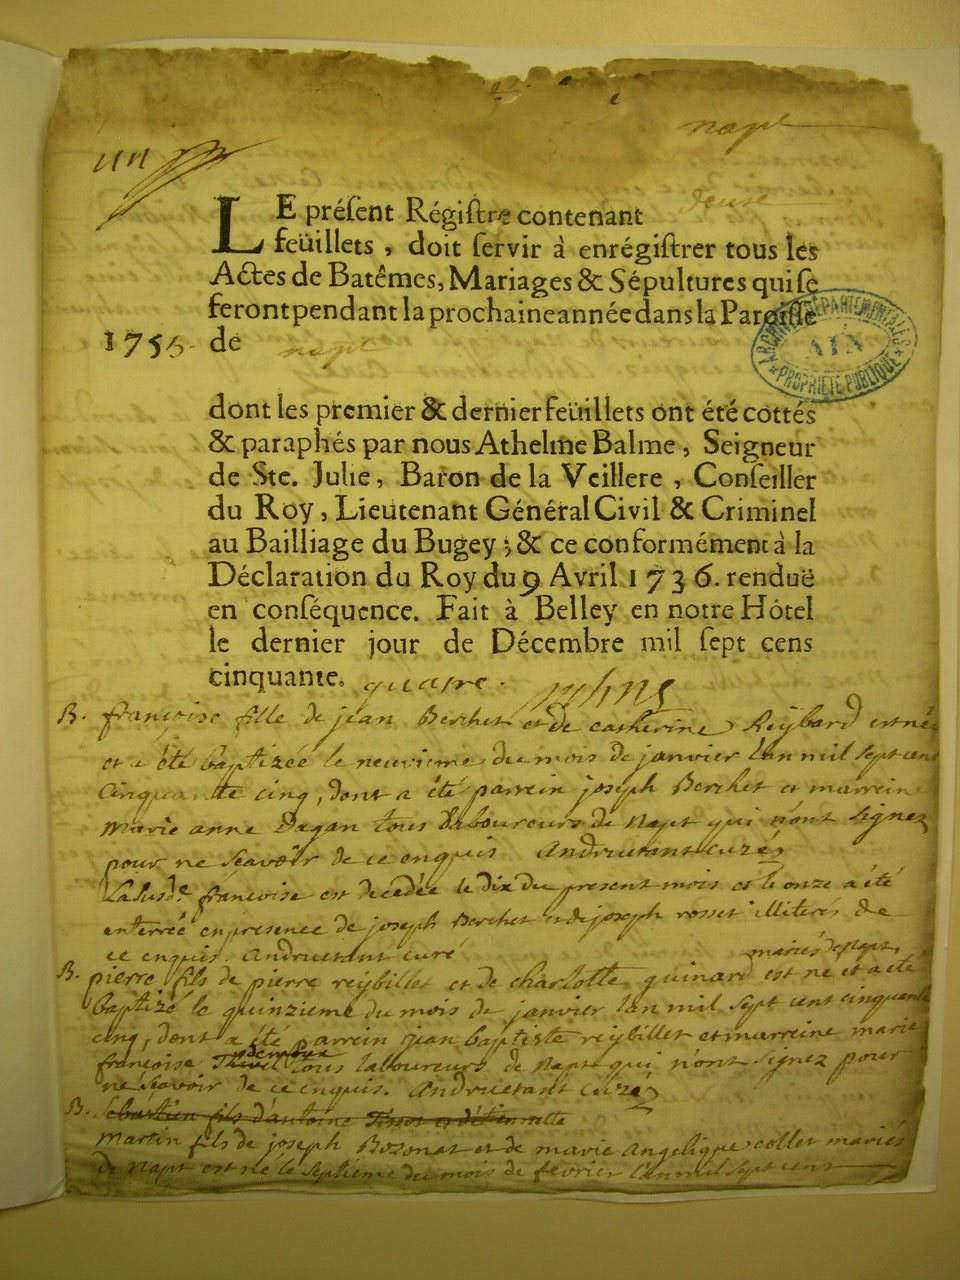 napt
un
LE préſent Régiſtre contenant douze
feüillets, doit ſervir à enrégiſtrer tous les
Actes de Batêmes, Mariages & Sépultures qui ſe
feront pendant la prochaine année dans la Paroiſſe
1755. de napt
ARCHIVES DÉPARTEMENTALES
AIN
PROPRIÉTÉ PUBLIQUE
dont les premier & dernier feüillets ont été cottés
& paraphés par nous Athelme Balme, Seigneur
de Ste. Julie, Baron de la Veillere, Conſeiller
du Roy, Lieutenant Général Civil & Criminel
au Bailliage du Bugey ; & ce conformément à la
Déclaration du Roy du 9 Avril 1736. renduë
en conſéquence. Fait à Belley en notre Hôtel
le dernier jour de Décembre mil ſept cens
cinquante. quatre.
B. françoise fille de jean Berchet et de catherine Reybard est née
et a été baptizée le neuvieme du mois de janvier l'an mil sept cent
cinquante cinq, dont a été parrein joseph Berchet et marreine
Marie anne Dagan tous laboureurs de Napt qui n'ont signez
pour ne sçavoir de ce enquis Andruetant curéz
La susde. françoise est decedée le dix du present mois et le onze a été
enterrée en presence de joseph Berchet et de joseph rosset illiterés de
ce enquis. Andruetant curé
mariés de Napt
B. pierre fils de pierre reybillet et de charlotte guinard est né et a été
baptizé le quinzieme du mois de janvier l'an mil sept cent cinquante
cinq, dont a été parrein jean baptiste reybillet et marreine marie
françoise tous laboureurs de Napt qui n'ont signez pour
ne sçavoir de ce enquis. Andruetant curez
B. Sebastien fils d'antoine Tissot et d'étiennette
Martin fils de joseph Bozonat et de marie Angelique collet mariés
de Napt est né le septieme du mois de fevrier l'an mil sept cent